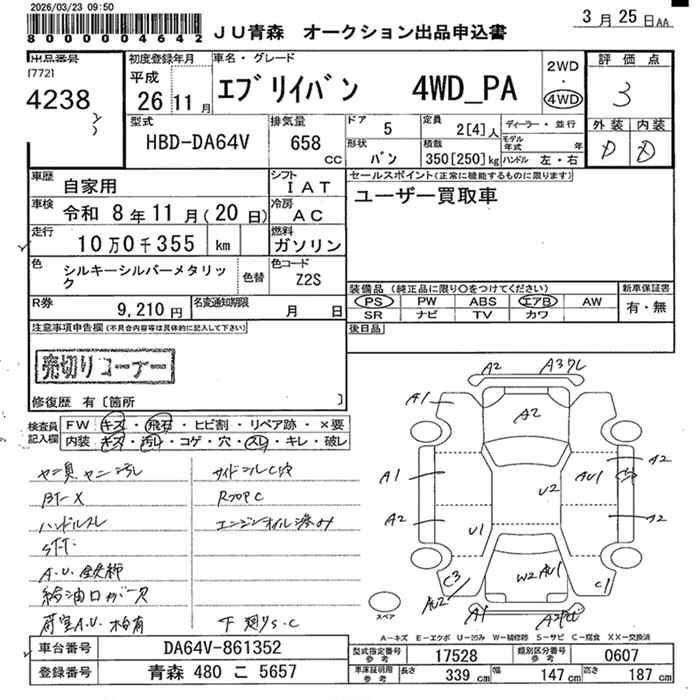 2026/03/23 09:50
8000004642
JU青森 オークション出品申込書
3月25日AA
出品番号
[772]
4238
初度登録年月
平成
26年11月
車名・グレード
エブリイバン 4WD_PA
2WD
・
4WD
評価点
3
外装 内装
D D
型式
HBD-DA64V
排気量
658
cc
ドア 5
形状 バン
定員 2[4]人
積載 350[250]kg
ディーラー・並行
モデル年式 年
ハンドル 左・右
車歴 自家用
シフト IAT
車検 令和 8年11月(20日)
冷房 AC
走行 10万0千355 km
燃料 ガソリン
色 シルキーシルバーメタリック
色替
色コード Z2S
R券 9,210円
名変通知期限 月 日
セールスポイント(正常に機能するものに限ります)
ユーザー買取車
装備品(純正品に限り〇をつけてください)
PS PW ABS エアB AW
SR ナビ TV カワ
新車保証書
有・無
後日品
注意事項申告欄(不具合内容等は具体的に記入して下さい)
売切りコーナー
修復歴 有〔箇所 〕
検査員記入欄
FW キズ・飛石・ヒビ割・リペア跡・×要
内装 キズ・汚れ・コゲ・穴・スレ・キレ・破レ
ヤニ臭ヤニ汚レ
BT-X
ハンドルスレ
STT
A.U. 鉄錆
給油口ガバ欠
荷室A.U.
サイドシルC穴
RフロアC
エンジンオイル滲み
下廻りS.C
A2
A3ワレ
A1
A2
A1
A2
A2
AU1
A2
U2
U1
C3
AU2
W2
AU1
C1
A1
スペア
A-キズ E-エクボ U-凹み W-補修跡 S-サビ C-腐食 XX-交換済
車台番号 DA64V-861352
登録番号 青森 480 こ 5657
型式指定番号 参考 17528
類別区分番号 参考 0607
車庫証明用 参考 長さ 339cm 幅 147cm 高さ 187cm